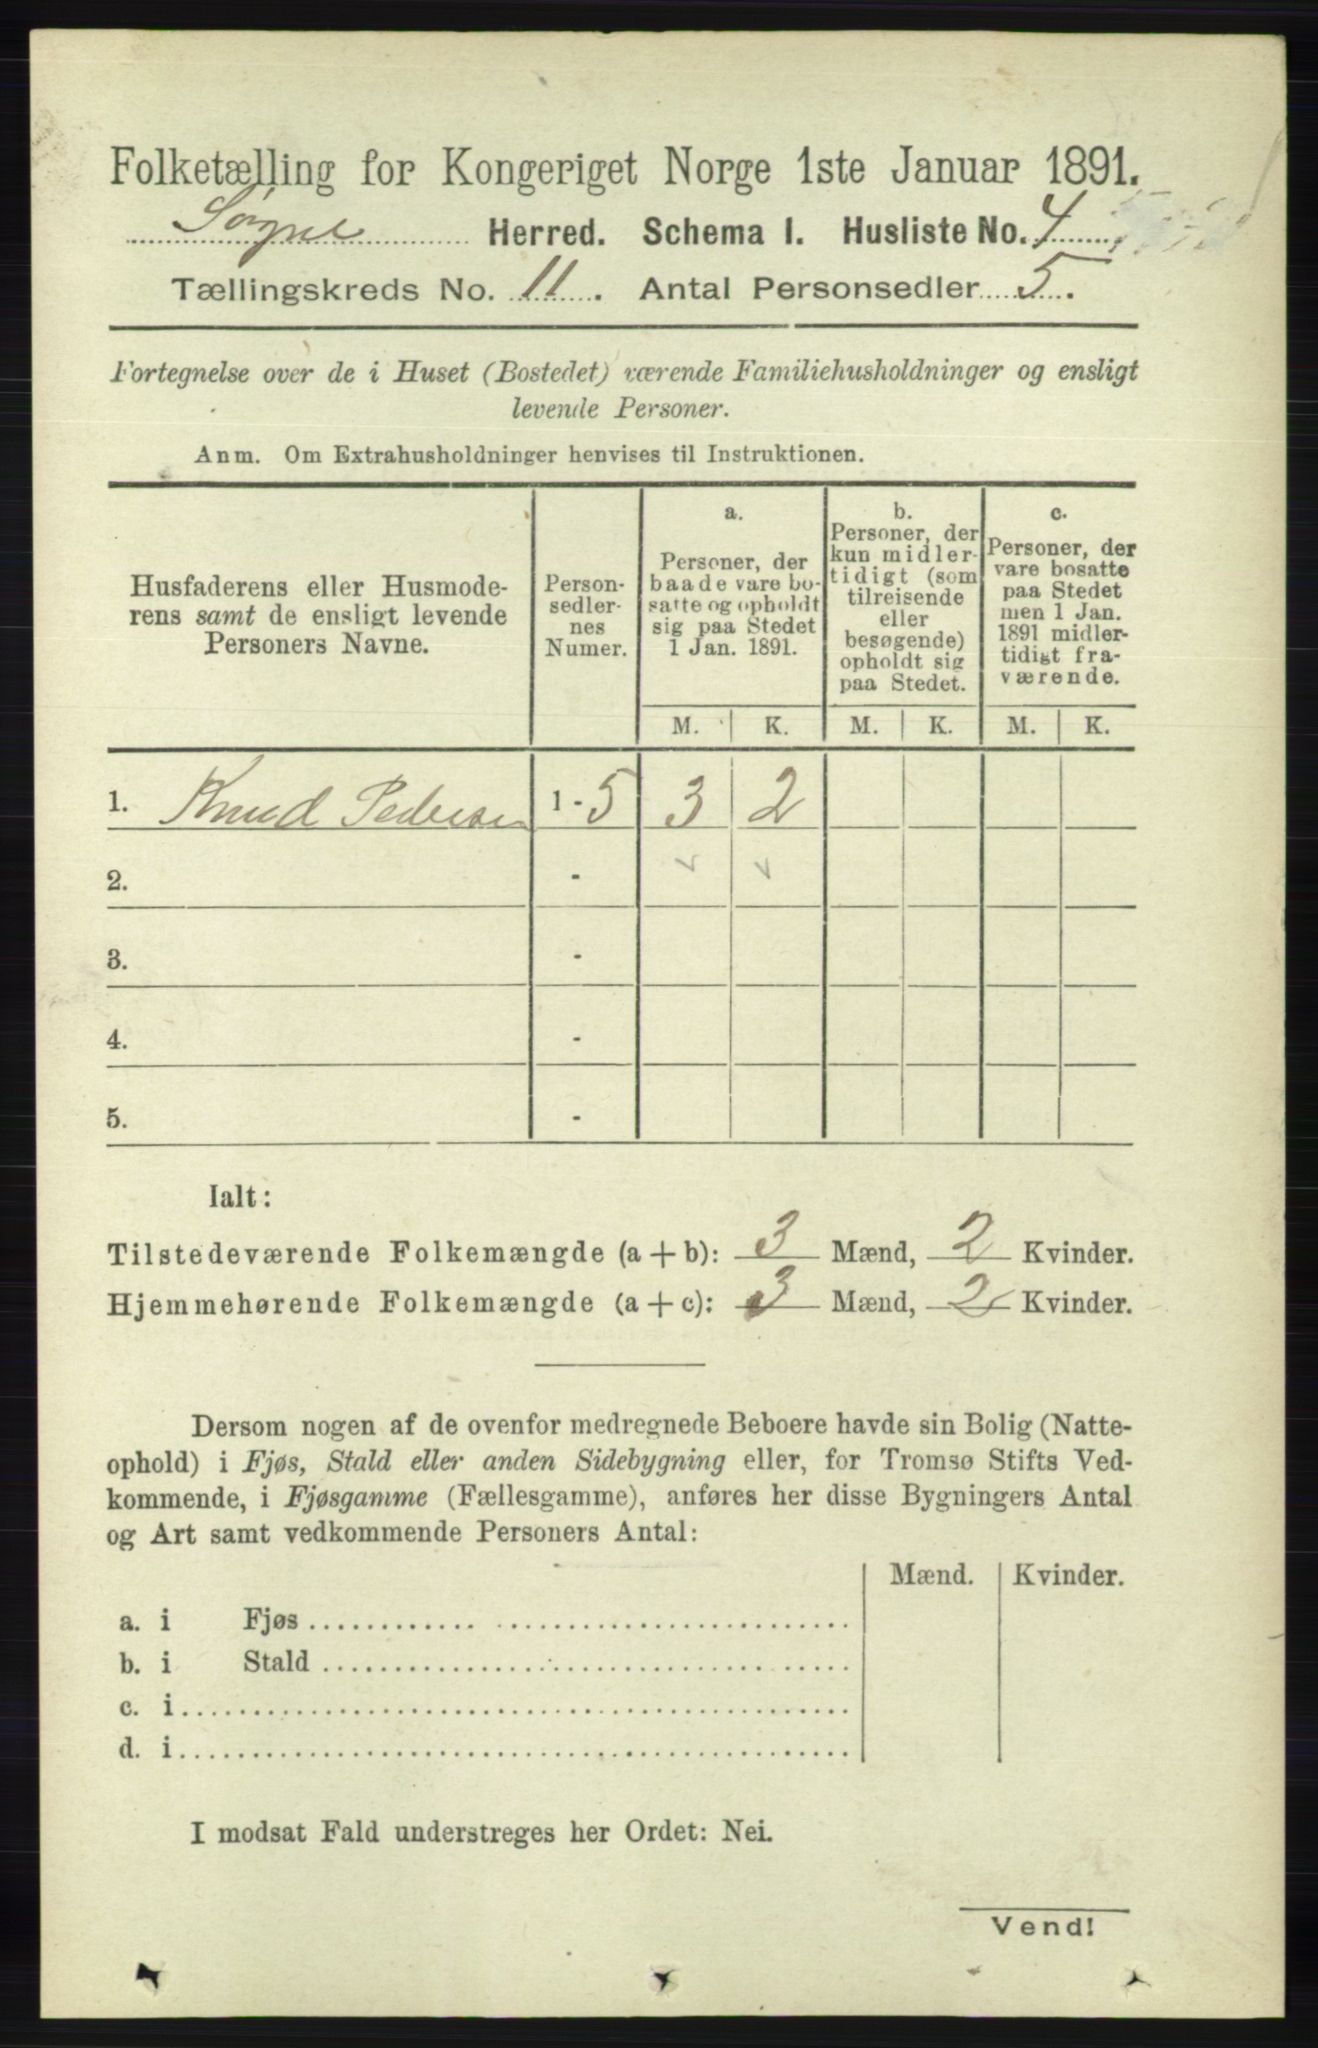 Folketælling for Kongeriget Norge 1ste Januar 1891.
Søgne Herred. Schema I. Husliste No. 4
Tællingskreds No. 11. Antal Personsedler 5.
Fortegnelse over de i Huset (Bostedet) værende Familiehusholdninger og ensligt
levende Personer.
Anm. Om Extrahusholdninger henvises til Instruktionen.
Husfaderens eller Husmode-
rens samt de ensligt levende
Personers Navne.
Person-
sedler-
nes
Numer.
a.
Personer, der
baade vare bo-
satte og opholdt
sig paa Stedet
1 Jan. 1891.
b.
Personer, der
kun midler-
tidigt (som
tilreisende
eller
besøgende)
opholdt sig
paa Stedet.
c.
Personer, der
vare bosatte
paa Stedet
men 1 Jan.
1891 midler-
tidigt fra-
værende.
M. K. M. K. M. K.
1. Knud Pedersen 1 - 5 3 2
2. -
3. -
4. -
5. -
Ialt:
Tilstedeværende Folkemængde (a + b): 3 Mænd, 2 Kvinder.
Hjemmehørende Folkemængde (a + c): 3 Mænd, 2 Kvinder.
Dersom nogen af de ovenfor medregnede Beboere havde sin Bolig (Natte-
ophold) i Fjøs, Stald eller anden Sidebygning eller, for Tromsø Stifts Ved-
kommende, i Fjøsgamme (Fællesgamme), anføres her disse Bygningers Antal
og Art samt vedkommende Personers Antal:
Mænd. Kvinder.
a. i Fjøs
b. i Stald
c. i
d. i
I modsat Fald understreges her Ordet: Nei.
Vend!